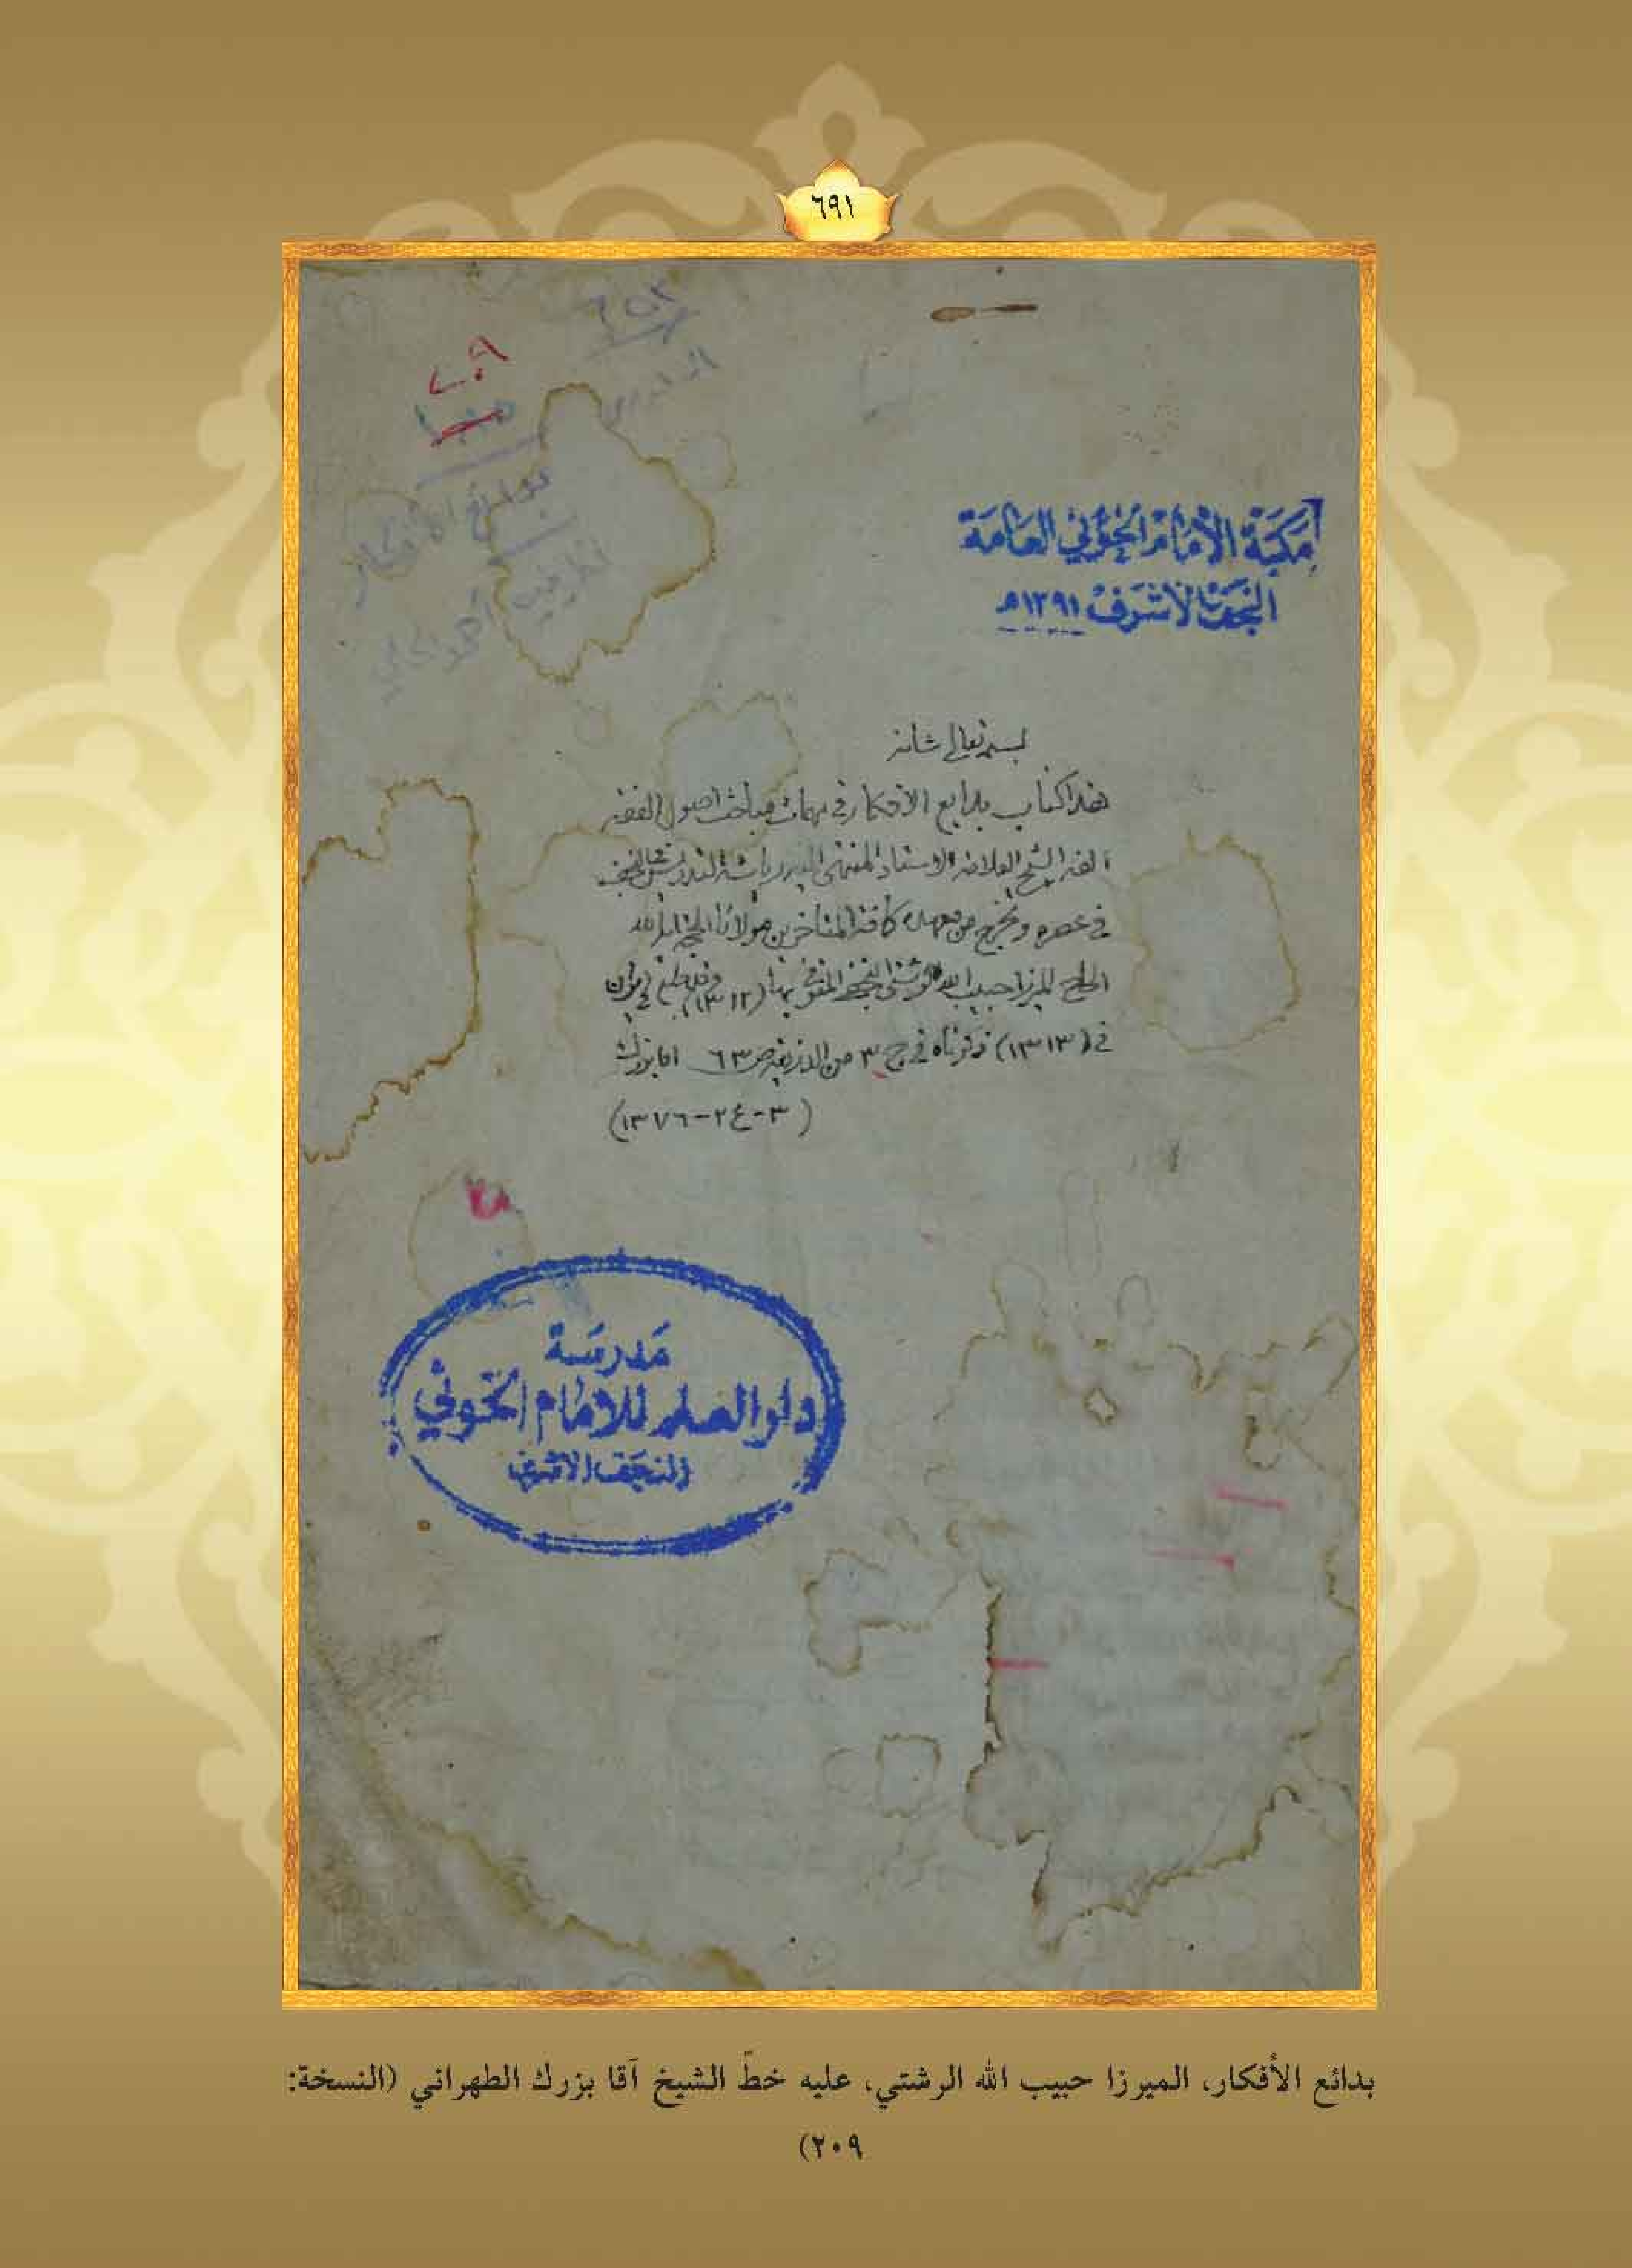 ٦٩١
٦٥٢
٢٠٩
بدايع الأفكار
مكتبة الإمام الخوئي العامة
النجف الاشرف ١٣٩١هـ
بسمه تعالى شانه
هذا كتاب بدايع الافكار في مهمات مباحث اصول الفقه
الفه الشيخ العلامة الاستاذ المنتهى اليه رياسة التدريس في النجف
في عصره وتخرج من معهده كافة المتأخرين مولانا الحجة اية الله
الحاج الميرزا حبيب الله الرشتي النجفي المتوفى بها (١٣١٢) وقد طبع في ايران
في (١٣١٣) ذكرناه في ج ٣ من الذريعة ص ٦٣ اقا بزرك
(٣-٢٤-١٣٧٦)
مدرسة
دار العلم للامام الخوئي
النجف الاشرف
بدائع الأفكار، الميرزا حبيب الله الرشتي، عليه خطّ الشيخ آقا بزرك الطهراني (النسخة:
٢٠٩)